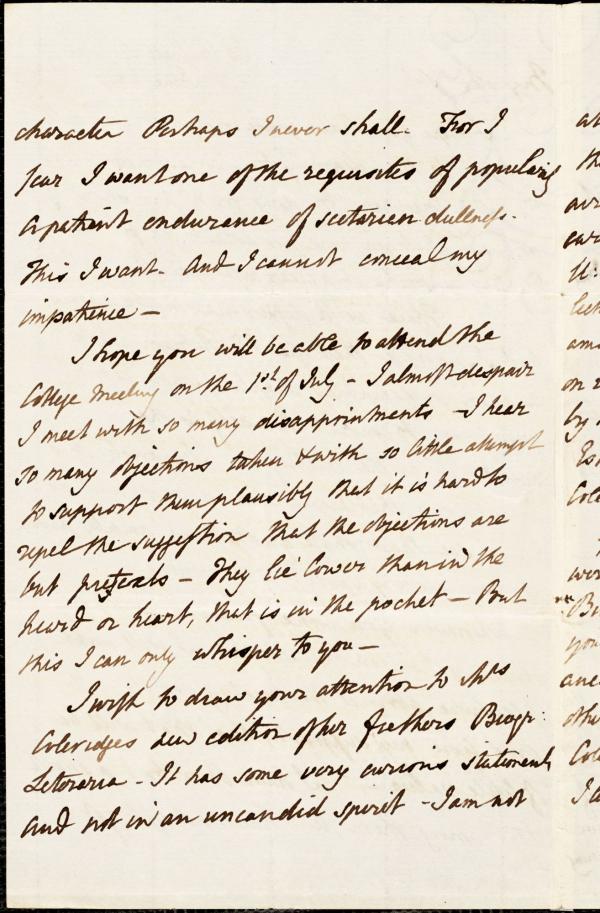 character Perhaps I never shall. For I
fear I want one of the requisites of popularity
a patient endurance of sectarian dullness.
This I want. And I cannot conceal my
impatience —
I hope you will be able to attend the
College Meeting on the 1st. of July – I almost despair
I meet with so many disappointments – I hear
so many objections taken & with so little attempt
to support them plausibly that it is hard to
repel the suggestion that the objections are
but pretexts – They lie lower than in the
head or heart, that is in the pocket – But
this I can only whisper to you –
I wish to draw your attention to Mrs
Coleridges new edition of her fathers Biogr:
Leteraria – It has some very curious statements
and not in an uncandid spirit – I am not